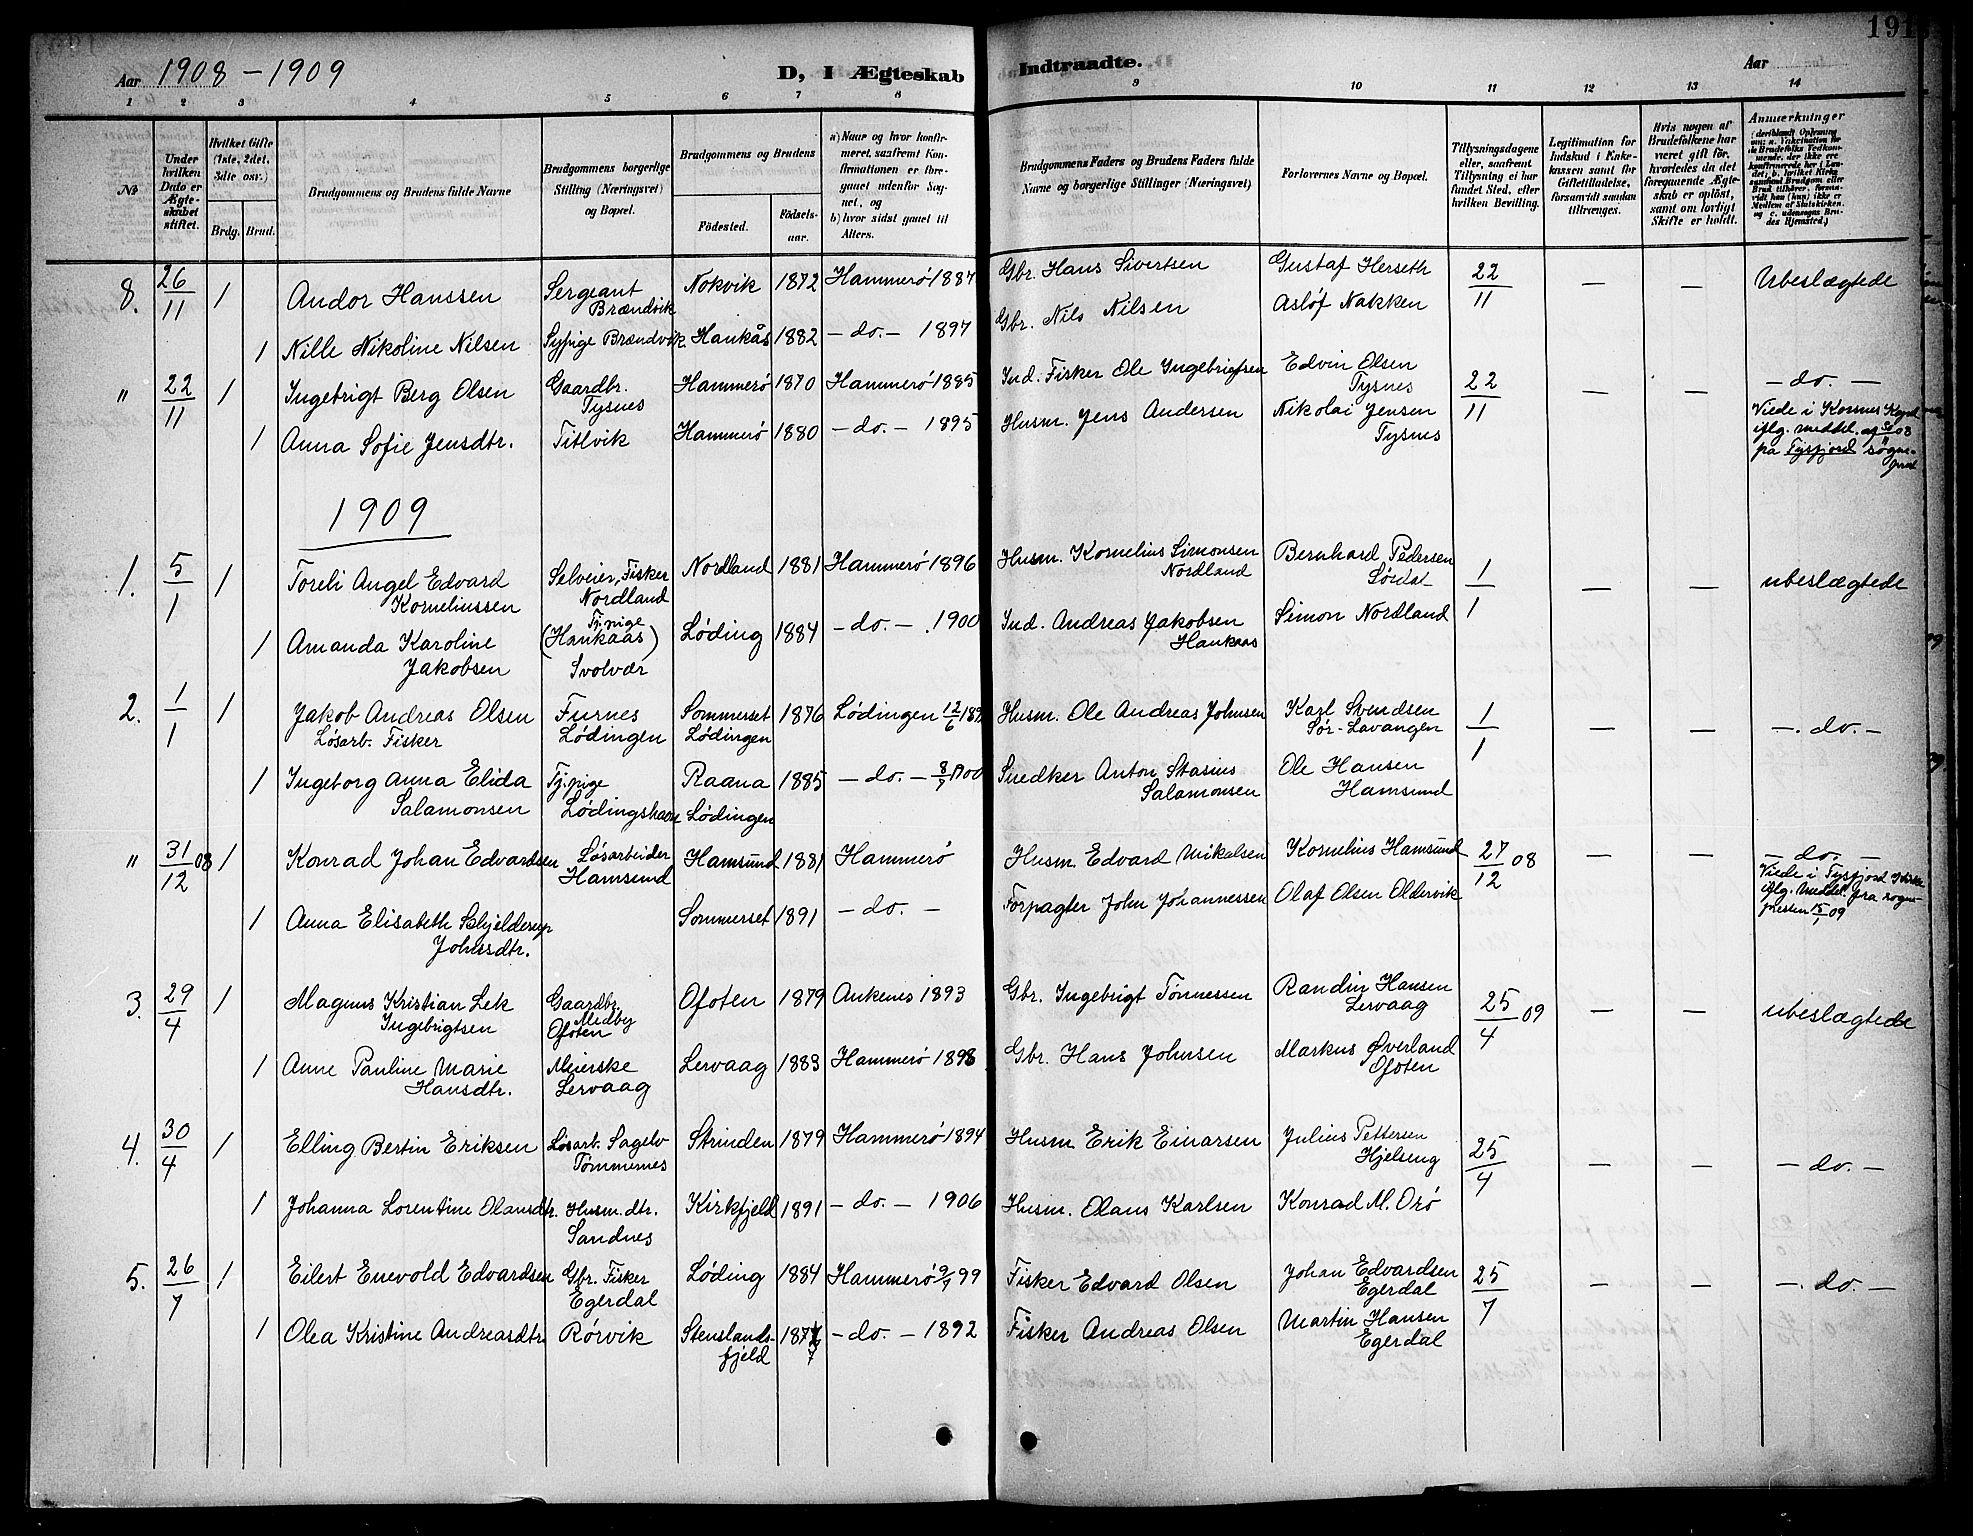 191
Aar 1908 - 1909
D, I Ægteskab Indtraadte.
Aar
1 2 3 4 5 6 7 8 9 10 11 12 13 14
No
Under hvilken Dato er Ægteskabet stiftet.
Hvilket Gifte (1ste, 2det, 3die osv.)
Brdg. Brud.
Brudgommens og Brudens fulde Navne
Brudgommens borgerlige Stilling (Næringsvei) og Bopæl.
Brudgommens og Brudens
Födested. Födselsaar.
a) Naar og hvor konfirmeret, saafremt Konfirmationen er foregaaet udenfor Sognet, og
b) hvor sidst gaaet til Alters.
Brudgommens Faders og Brudens Faders fulde Navne og borgerlige Stillinger (Næringsvei)
Forlovernes Navne og Bopæl.
Tillysningsdagene eller, saafremt Tillysning ei har fundet Sted, efter hvilken Bevilling.
Legitimation for Indskud i Enkekassen samt for Giftetilladelse, forsaavidt saadan tiltrænges.
Hvis nogen af Brudefolkene har været gift för, hvorledes da det foregaaende Ægteskab er oplöst, samt om lovligt Skifte er holdt.
Anmerkninger
8. 26/11 1 Andor Hanssen Sergeant Brændvik Nokvik 1872 Hammerö 1887 Gbr. Hans Sivertsen Gustaf Herseth 22/11 — — Ubeslægtede
1 Nille Nikoline Nilsen Sypige Brændvik Hankås 1882 - do. - 1897 Gbr. Nils Nilsen Aslöf Nakken
" 22/11 1 Ingebrigt Berg Olsen Gaardbr. Tysnes Hammerö 1870 Hammerö 1885 Ind. Fisker Ole Ingebrigtsen Edvin Olsen Tysnes 22/11 — — - do. -
1 Anna Sofie Jensdtr. Titlvik Hammerö 1880 - do. - 1895 Husm. Jens Andersen Nikolai Jensen Tysnes
Viede i Korsnes
iflg. meddel. af
på Tysfjord
1909
1. 5/1 1 Toreli Angel Edvard Korneliussen Selveier, Fisker Nordland Nordland 1881 Hammerö 1896 Husm. Kornelius Simonsen Nordland Bernhard Pedersen 1/1 — — ubeslægtede
1 Amanda Karoline Jakobsen Tj.pige (Hankaas) Svolvær Löding 1884 - do. - 1900 Ind. Andreas Jakobsen Hankaas Simon Nordland
2. 1/1 1 Jakob Andreas Olsen Lösarb. Fisker Furnes Lödingen Sommerset Lödingen 1876 Lödingen 12/6 189 Husm. Ole Andreas Johnsen Karl Svendsen Sör-Lavangen 1/1 — — -. do. -
1 Ingeborg Anna Elida Salamonsen Tj.pige Lödingshavn Raana Lödingen 1885 - do. - 8/7 1900 Snedker Anton Stasius Salamonsen Ole Hansen Hamsund
" 31/12 08 1 Konrad Johan Edvardsen Lösarbeider Hamsund Hamsund 1881 Hammerö Husm Edvard Mikalsen Kornelius Hamsund 27/12 08 — — - do. -
1 Anna Elisabeth Schjelderup Johnsdtr. Sommerset 1891 - do. - Forpagter John Johannessen Olaf Olsen Oldervik
Viede i Tysfjord Kirke
iflg. Meddel. fra sogne-
presten 15/1 09
3. 29/4 1 Magnus Kristian Lek Ingebrigtsen Gaardbr. Medby Ofoten Ofoten 1879 Ankenes 1893 Gbr. Ingebrigt Tönnessen Randin Hansen Lervaag 25/4 09 — — ubeslægtede
1 Anne Pauline Marie Hansdtr. Meierske Lervaag Lervaag 1883 Hammerö 1898 Gbr. Hans Johnsen Markus Øverland Ofoten
4. 30/4 1 Elling Bertin Eriksen Lösarb. Sagelv Tömmernes Strinden 1879 Hammerö 1894 Husm Erik Einarsen Julius Pettersen Hjelseng 25/4 — — - do. -
1 Johanna Lorentine Olausdtr. Husm.dtr. Sandnes Kirkfjeld 1891 - do. - 1906 Husm. Olaus Karlsen Konrad M. Orö
5. 26/7 1 Eilert Enevold Edvardsen Gbr. Fisker Egerdal Löding 1884 Hammerö 9/7 99 Fisker Edvard Olsen Johan Edvardsen Egerdal 25/7 — — -. do. -
1 Olea Kristine Andreasdtr Rörvik Stenslandsfjeld 1877 - do. - 1892 Fisker Andreas Olsen Martin Hansen Egerdal